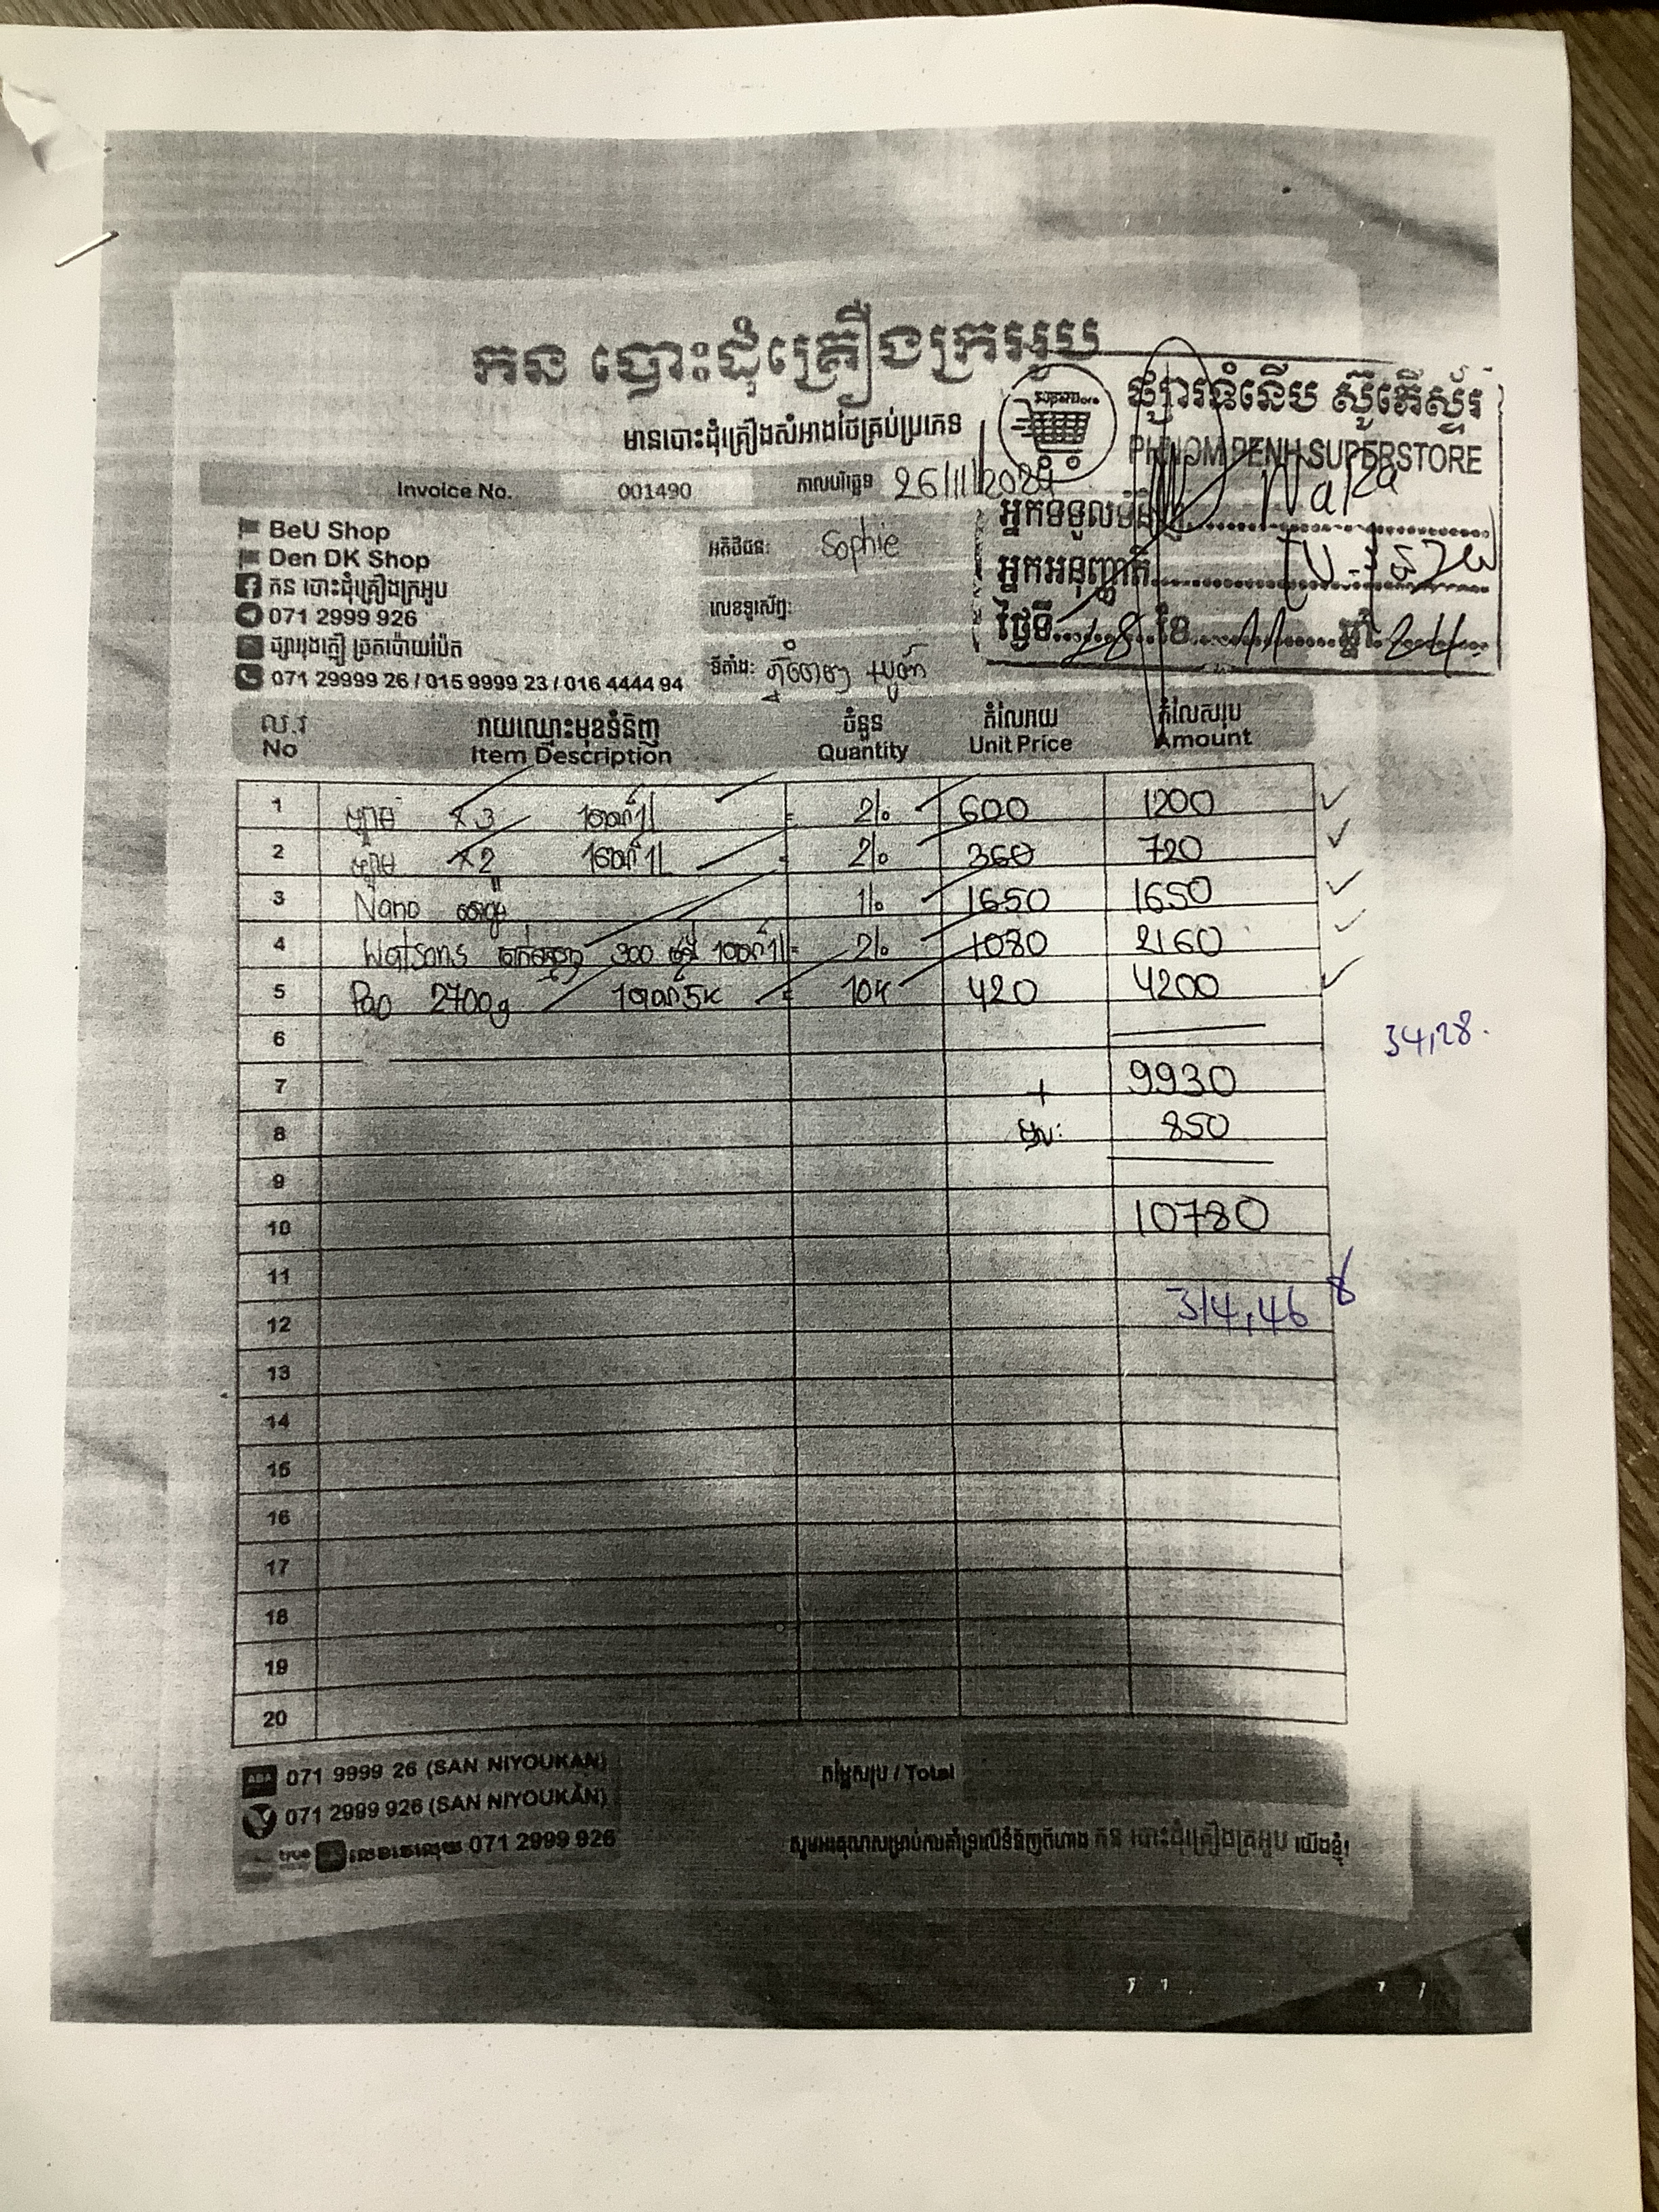 កន បោះដុំគ្រឿងក្រអូប
មានបោះដុំគ្រឿងសំអាងថៃគ្រប់ប្រភេទ
ផ្សារទំនើប ស៊ូភើស្ទ័រ
PHNOM PENH SUPERSTORE
អ្នកទទួលទំនិញ
អ្នកអនុញ្ញាតិ
ថ្ងៃទី 28 ខែ 11 ឆ្នាំ 24
Invoice No. 001490 កាលបរិច្ឆេទ 26/11/2024
BeU Shop
Den DK Shop
កន បោះដុំគ្រឿងក្រអូប
071 2999 926
ផ្សាររុងក្លឿ ច្រកប៉ោយប៉ែត
071 29999 26 / 015 9999 23 / 016 4444 94
អតិថិជន: Sophie
លេខទូរស័ព្ទ:
ទីតាំង:
ល.រ រាយឈ្មោះមុខទំនិញ ចំនួន តំលៃរាយ តំលៃសរុប
No Item Description Quantity Unit Price Amount
1 x3 600 1200
2 x2 360 720
3 Nano 1650 1650
4 Watsons 300 1080 2160
5 Pao 2700g 10K 420 4200
6
34,28.
7 + 9930
8 850
9
10 10780
11
12 314,46
13
14
15
16
17
18
19
20
ABA 071 9999 26 (SAN NIYOUKAN)
071 2999 926 (SAN NIYOUKAN)
true 071 2999 926
តម្លៃសរុប / Total
សូមអរគុណសម្រាប់ការគាំទ្រលើទំនិញពីហាង កន បោះដុំគ្រឿងក្រអូប យើងខ្ញុំ!